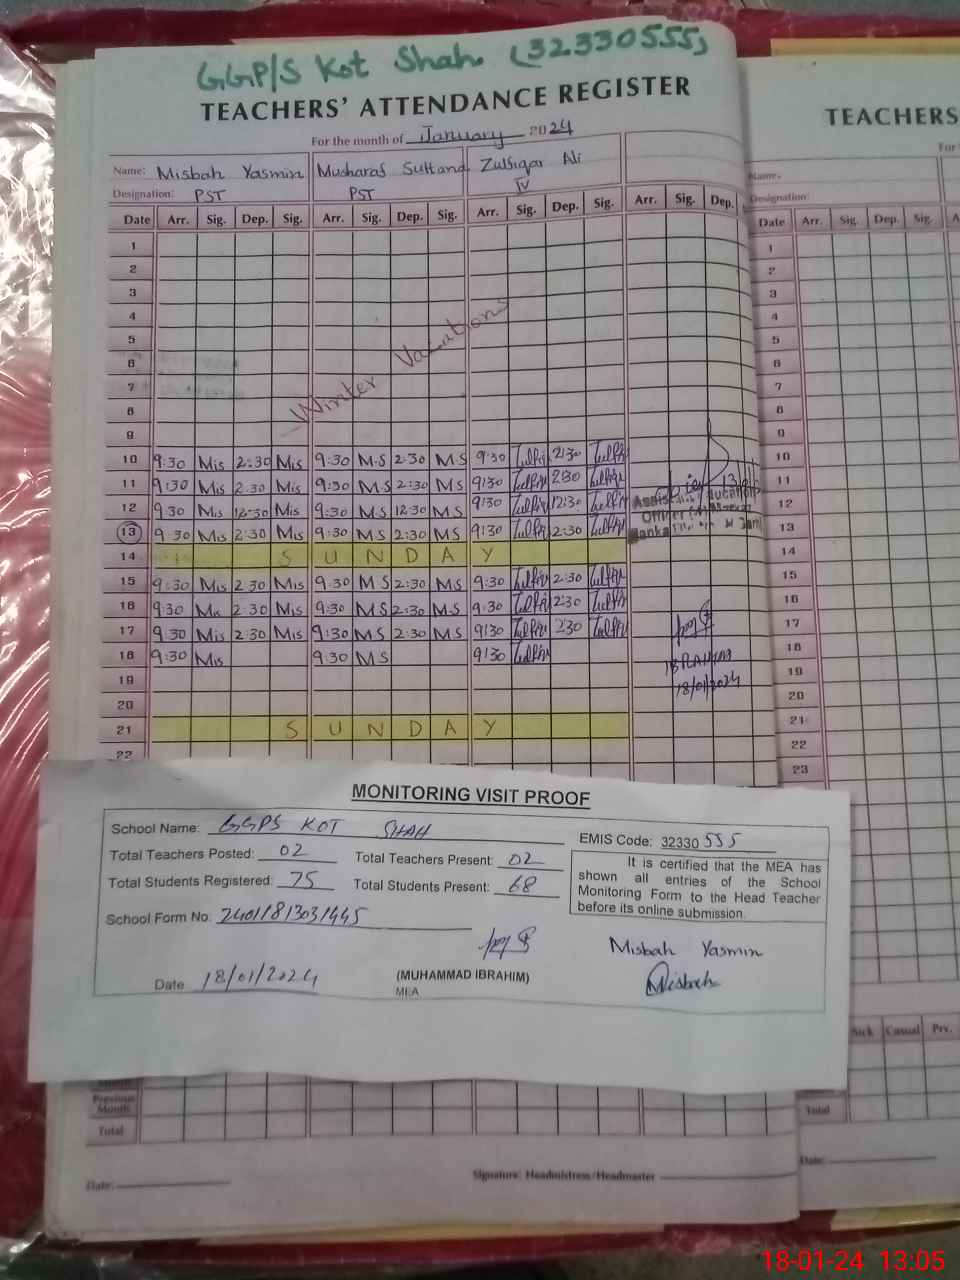 GGP/S Kot Shah (32330555)
TEACHERS' ATTENDANCE REGISTER
For the month of January 2024
Name: Misbah Yasmin Musharaf Sultana Zulfiqar Ali
Designation: PST PST IV
Date Arr. Sig. Dep. Sig. Arr. Sig. Dep. Sig. Arr. Sig. Dep. Sig. Arr. Sig. Dep.
1
2
3
4
5
6
7
8
9
Winter Vacations
10 9:30 Mis 2:30 Mis 9:30 M.S 2:30 M S 9:30 2:30
11 9:30 Mis 2:30 Mis 9:30 M.S 2:30 M S 9:30 2:30
12 9:30 Mis 12:30 Mis 9:30 M.S 12:30 M S 9:30 12:30
13 9:30 Mis 2:30 Mis 9:30 M.S 2:30 M S 9:30 2:30
Assistant Education
Officer
14 S U N D A Y
15 9:30 Mis 2:30 Mis 9:30 M S 2:30 M S 9:30 2:30
16 9:30 Mis 2:30 Mis 9:30 M S 2:30 M S 9:30 2:30
17 9:30 Mis 2:30 Mis 9:30 M.S 2:30 M S 9:30 2:30
18 9:30 Mis 9:30 M S 9:30
IBRAHIM
18/01/2024
19
20
21 S U N D A Y
22
MONITORING VISIT PROOF
School Name: GGPS KOT SHAH
EMIS Code: 32330 555
Total Teachers Posted: 02 Total Teachers Present: 02
Total Students Registered: 75 Total Students Present: 68
School Form No: 24011813031445
It is certified that the MEA has
shown all entries of the School
Monitoring Form to the Head Teacher
before its online submission.
Misbah Yasmin
Misbah
Date 18/01/2024
(MUHAMMAD IBRAHIM)
MEA
Month
Previous
Month
Total
Date:
Signature: Headmistress/Headmaster
TEACHERS
For
Name.
Designation:
Date Arr. Sig. Dep. Sig. A
1
2
3
4
5
6
7
8
9
10
11
12
13
14
15
16
17
18
19
20
21
22
23
Sick Casual Prv.
Total
Date:
18-01-24 13:05